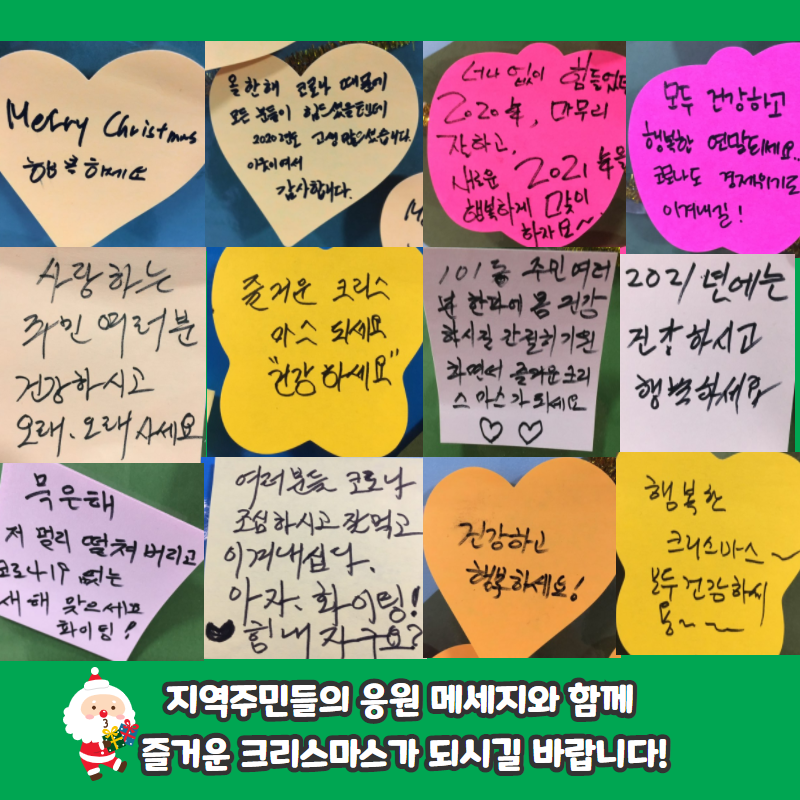 Merry Christmas
행복하세요
올 한해 코로나 때문에
모든 분들이 힘드셨을텐데
2020년도 고생 많으셨습니다.
이웃이여서
감사합니다.
너나 없이 힘들었던
2020年, 마무리
잘하고,
새로운 2021年을
행복하게 맞이
하자요~
모두 건강하고
행복한 연말되세요..
코로나도 경제위기도
이겨내길!
사랑하는
주민 여러분
건강하시고
오래. 오래 사세요
즐거운 크리스
마스 되세요
"건강하세요"
101동 주민여러
분 한파에 몸 건강
하시길 간절히 기원
하면서 즐거운 크리
스마스가 되세요
♡ ♡
2021년에는
건강하시고
행복하세요
묵은해
저 멀리 떨쳐버리고
코로나19 없는
새해 맞으세요
화이팅!
여러분들 코로나
조심하시고 잘먹고
이겨내십다.
아자. 화이팅!
♥힘내자구요?
건강하고
행복하세요!
행복한
크리스마스~
모두 건강하시
용~~
지역주민들의 응원 메세지와 함께
즐거운 크리스마스가 되시길 바랍니다!